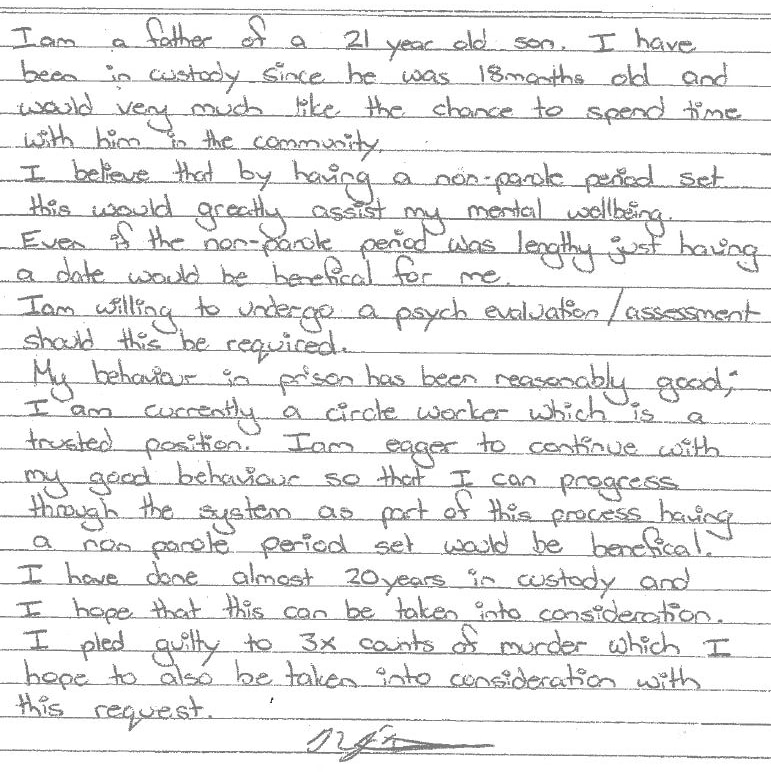 I am a father of a 21 year old son. I have
been in custody since he was 18 months old and
would very much like the chance to spend time
with him in the community.
I believe that by having a non-parole period set
this would greatly assist my mental wellbeing.
Even if the non-parole period was lengthy just having
a date would be benefical for me.
I am willing to undergo a psych evaluation/assessment
should this be required.
My behaviour in prison has been reasonably good;
I am currently a circle worker which is a
trusted position. I am eager to continue with
my good behaviour so that I can progress
through the system as part of this process having
a non parole period set would be benefical.
I have done almost 20 years in custody and
I hope that this can be taken into consideration.
I pled guilty to 3x counts of murder which I
hope to also be taken into consideration with
this request.